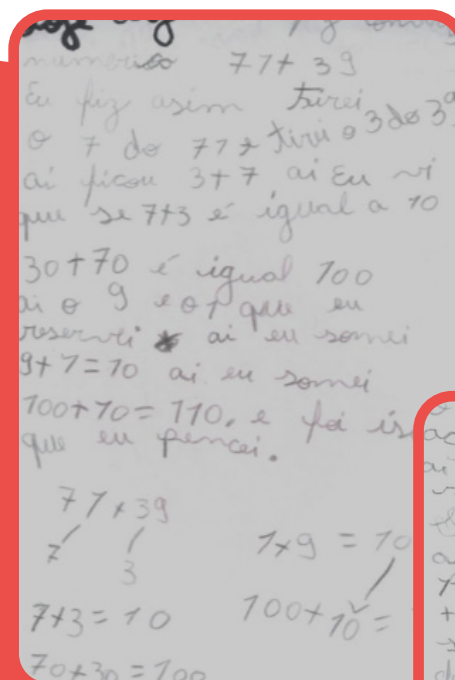 hoje
fiz
numérico 71+39
Eu fiz asim tirei
o 7 do 71 e tirei o 3 do 39
ai ficou 3+7, ai Eu vi
que se 7+3 é igual a 10
30+70 é igual 100
ai o 9 e o 1 que eu
reservei ai eu somei
9+1=10 ai eu somei
100+10=110, e foi is
que eu pencei.
71+39
7
3
7+3=10
70+30=100
1+9=10
100+10=